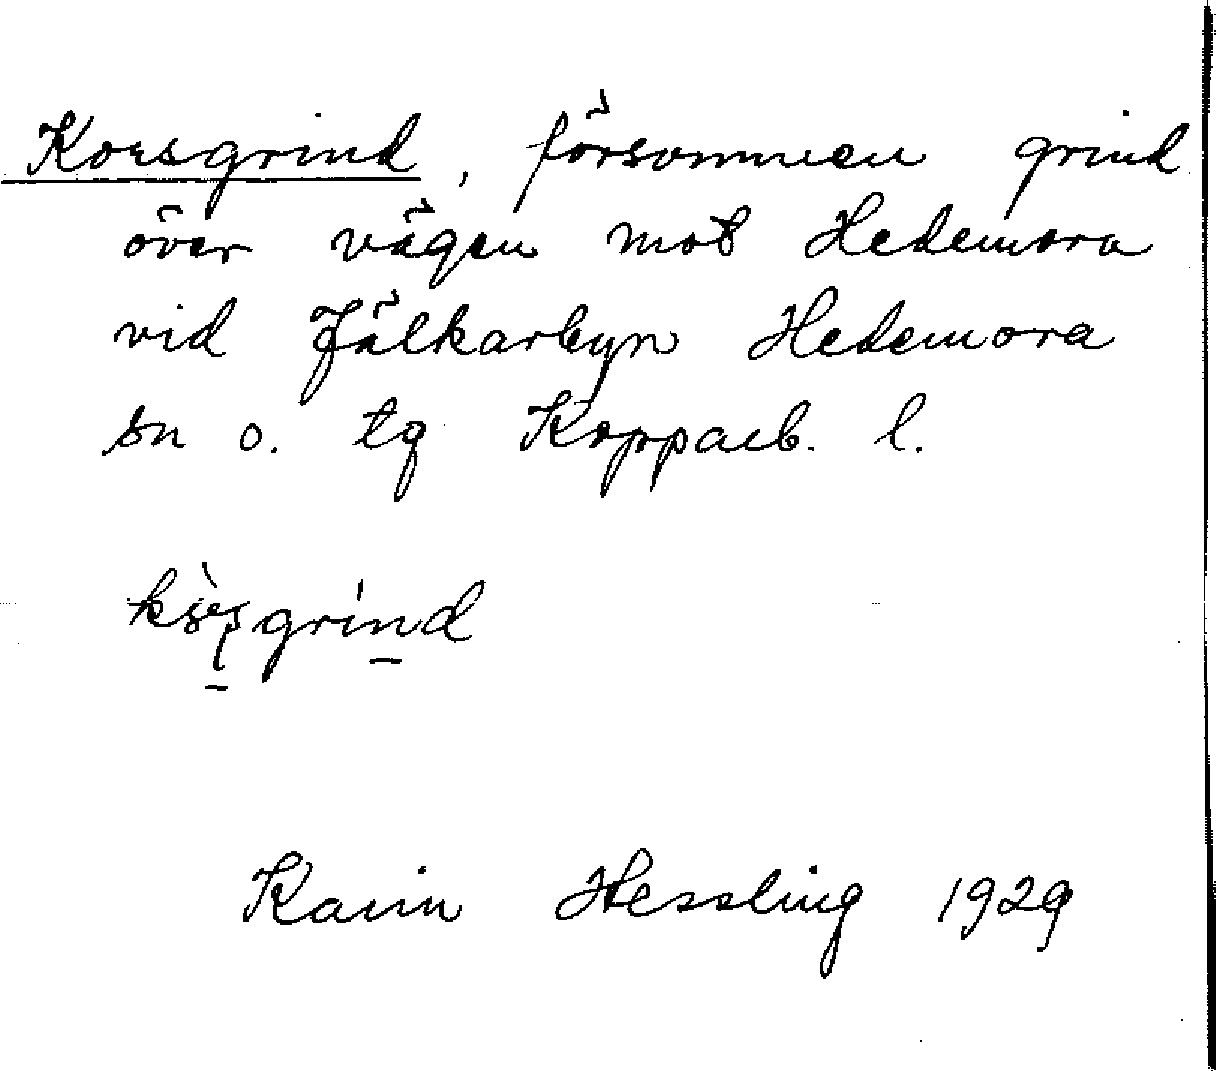 Korsgrind, försvunnen grind
över vägen mot Hedemora
vid Jälkarbyn Hedemora
sn o. tg Kopparb. l.
Karin Hessling 1929